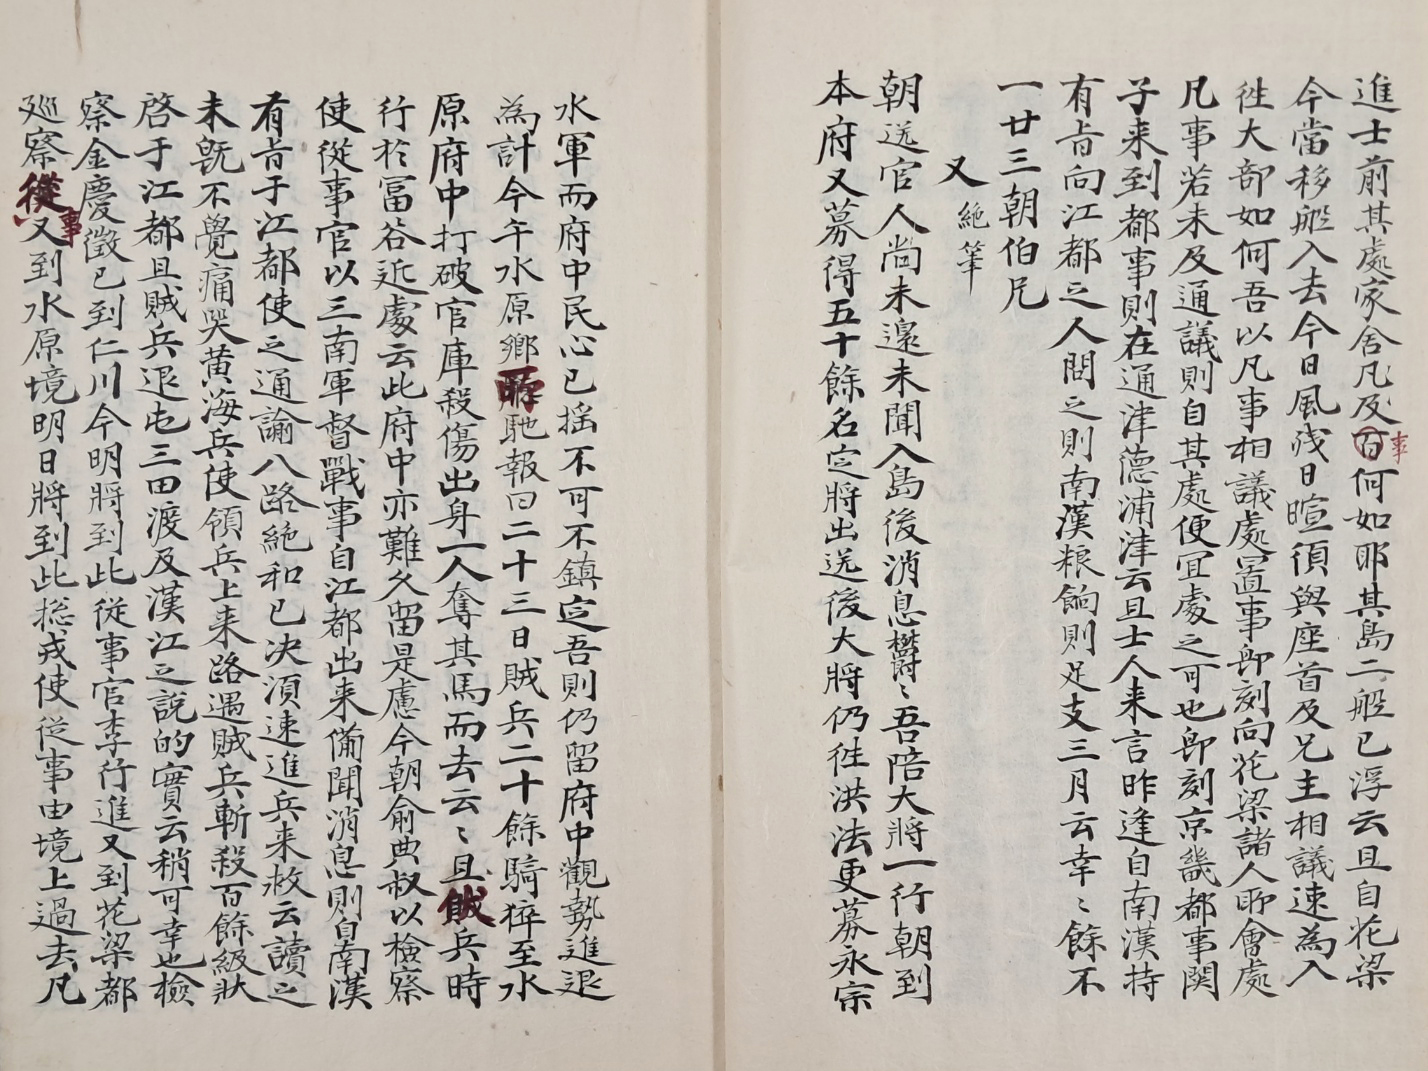 進士前其處家舍凡及百事何如耶其島二船已浮云且自花梁
今當移船入去今日風殘日暄須與座首及兄主相議速為入
徃大部如何吾以凡事相議處置事卽刻向花梁諸人聊會處
凡事若未及通議則自其處便冝處之可也卽刻京畿都事関
子来到都事則在通津德浦津云且士人来言昨逢自南漢持
有旨向江都之人問之則南漢粮餉則足支三月云幸〻餘不
一廿三朝伯兄
又 絶筆
朝送官人尚未還未聞入島後消息欝〻吾陪大將一行朝到
本府又募得五十餘名定將出送後大將仍徃洪法更募永宗
水軍而府中民心已揺不可不鎮定吾則仍留府中觀勢進退
為計今午水原鄉所馳報曰二十三日賊兵二十餘騎猝至水
原府中打破官庫殺傷出身一人奪其馬而去云〻且賊兵時
行於冨谷近處云此府中亦難久留是慮今朝俞典叔以檢察
使從事官以三南軍督戰事自江都出来備聞消息則自南漢
有旨于江都使之通諭八路絶和已决須速進兵来救云讀之
未旣不覺痛哭黄海兵使領兵上来路遇賊兵斬殺百餘級狀
啓于江都且賊兵退屯三田渡及漢江之說的實云稍可幸也檢
察金慶徵已到仁川今明將到此從事官李行進又到花梁都
廵察從事又到水原境明日將到此摠戎使從事由境上過去凡